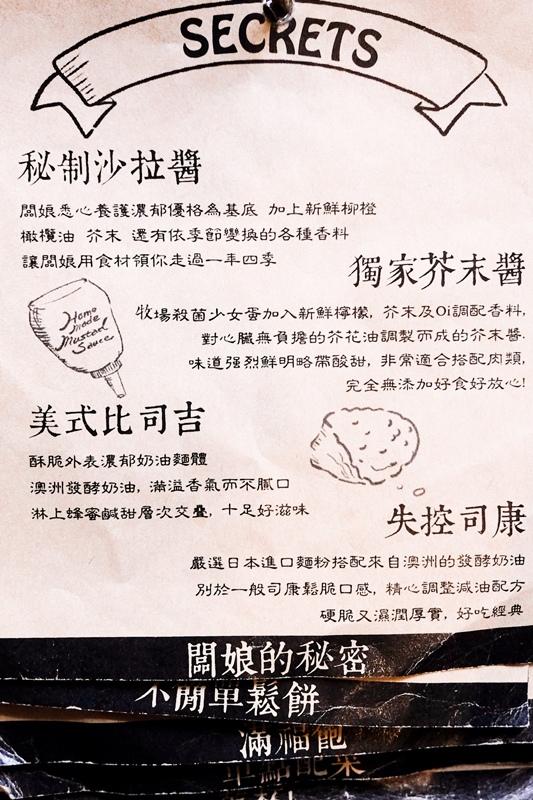 SECRETS
秘制沙拉醬
闆娘悉心養護濃郁優格為基底 加上新鮮柳橙
橄欖油 芥末 還有依季節變換的各種香料
讓闆娘用食材領你走過一年四季
獨家芥末醬
牧場殺菌少女蛋加入新鮮檸檬, 芥末及Oi調配香料,
對心臟無負擔的芥花油調製而成的芥末醬.
味道强烈鮮明略帶酸甜, 非常適合搭配肉類,
完全無添加好食好放心!
Home
made
Mustad
Sauce
美式比司吉
酥脆外表濃郁奶油麵體
澳洲發酵奶油, 滿溢香氣而不膩口
淋上蜂蜜鹹甜層次交疊, 十足好滋味
失控司康
嚴選日本進口麵粉搭配來自澳洲的發酵奶油
別於一般司康鬆脆口感, 精心調整減油配方
硬脆又濕潤厚實, 好吃經典
闆娘的秘密
不簡單鬆餅
滿福飽
單點配菜